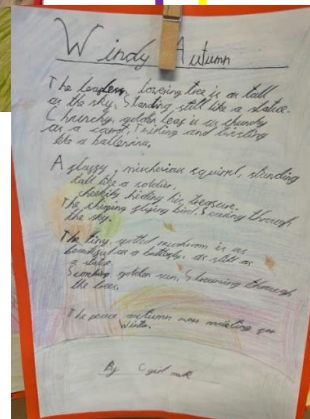 Windy Autumn
The leafless, towering tree is as tall
as the sky, Standing still like a statue.
Crunchy, golden leaf is as crunchy
as a carrot, Twirling and twisting
like a ballerina.
A glassy, mischievious squirrel, standing
tall like a soldier,
cheekily hiding his treasure.
The flying bird, Soaring through
the sky.
The tiny, spotted mushroom is as
as a butterfly, as still as
a statue.
golden sun, through
the trees.
The peace autumn was waiting for
winter.
By